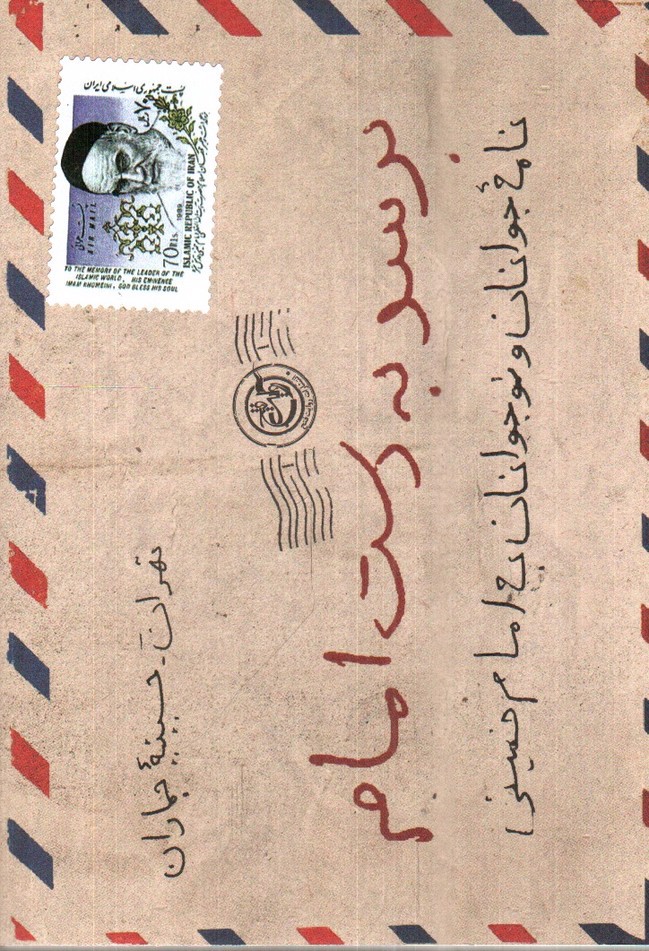 پست جمهوری اسلامی ایران
۷۰ ریال
پست هوائی
AIR MAIL
1989
70 Rls.
ISLAMIC REPUBLIC OF IRAN
TO THE MEMORY OF THE LEADER OF THE
ISLAMIC WORLD, HIS EMINENCE
IMAM KHOMEINI, GOD BLESS HIS SOUL
تهران - حسینیهٔ جماران
برسد به دست امام
نامهٔ جوانان و نوجوانان به امام خمینی